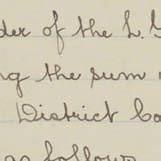 of the L.
the sum
District
as follows